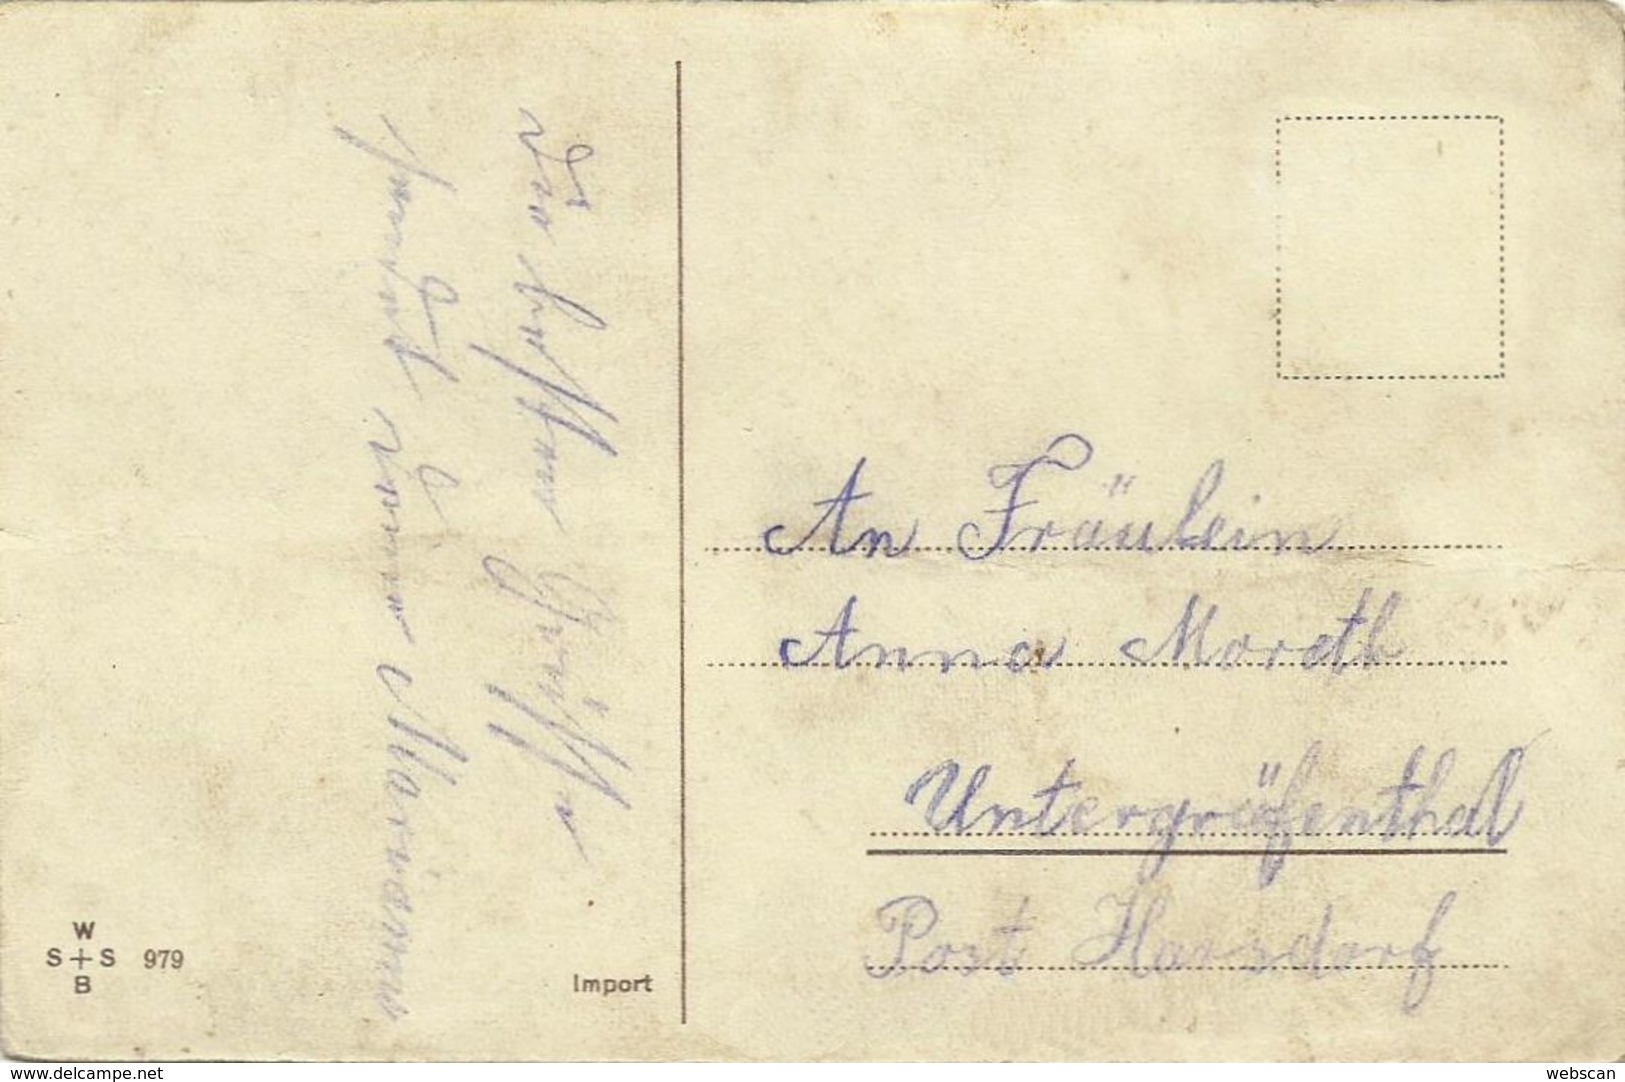 Die besten Grüße
sendet deine Marianne
An Fräulein
Anna Moreth
Untergräfenthal
Post Harsdorf
W
S+S 979
B
Import
www.delcampe.net
webscan